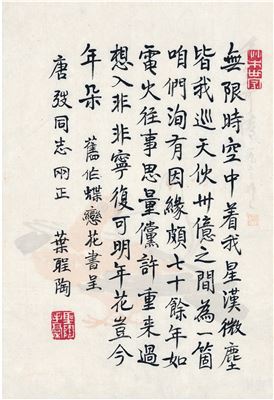 無限時空中着我星漢微塵
皆我巡天伙卅億之間為一箇
咱們洵有因緣頗七十餘年如
電火往事思量儻許重来過
想入非非寧復可明年花豈今
年朵 舊作蝶戀花書呈
唐弢同志刪正 葉聖陶